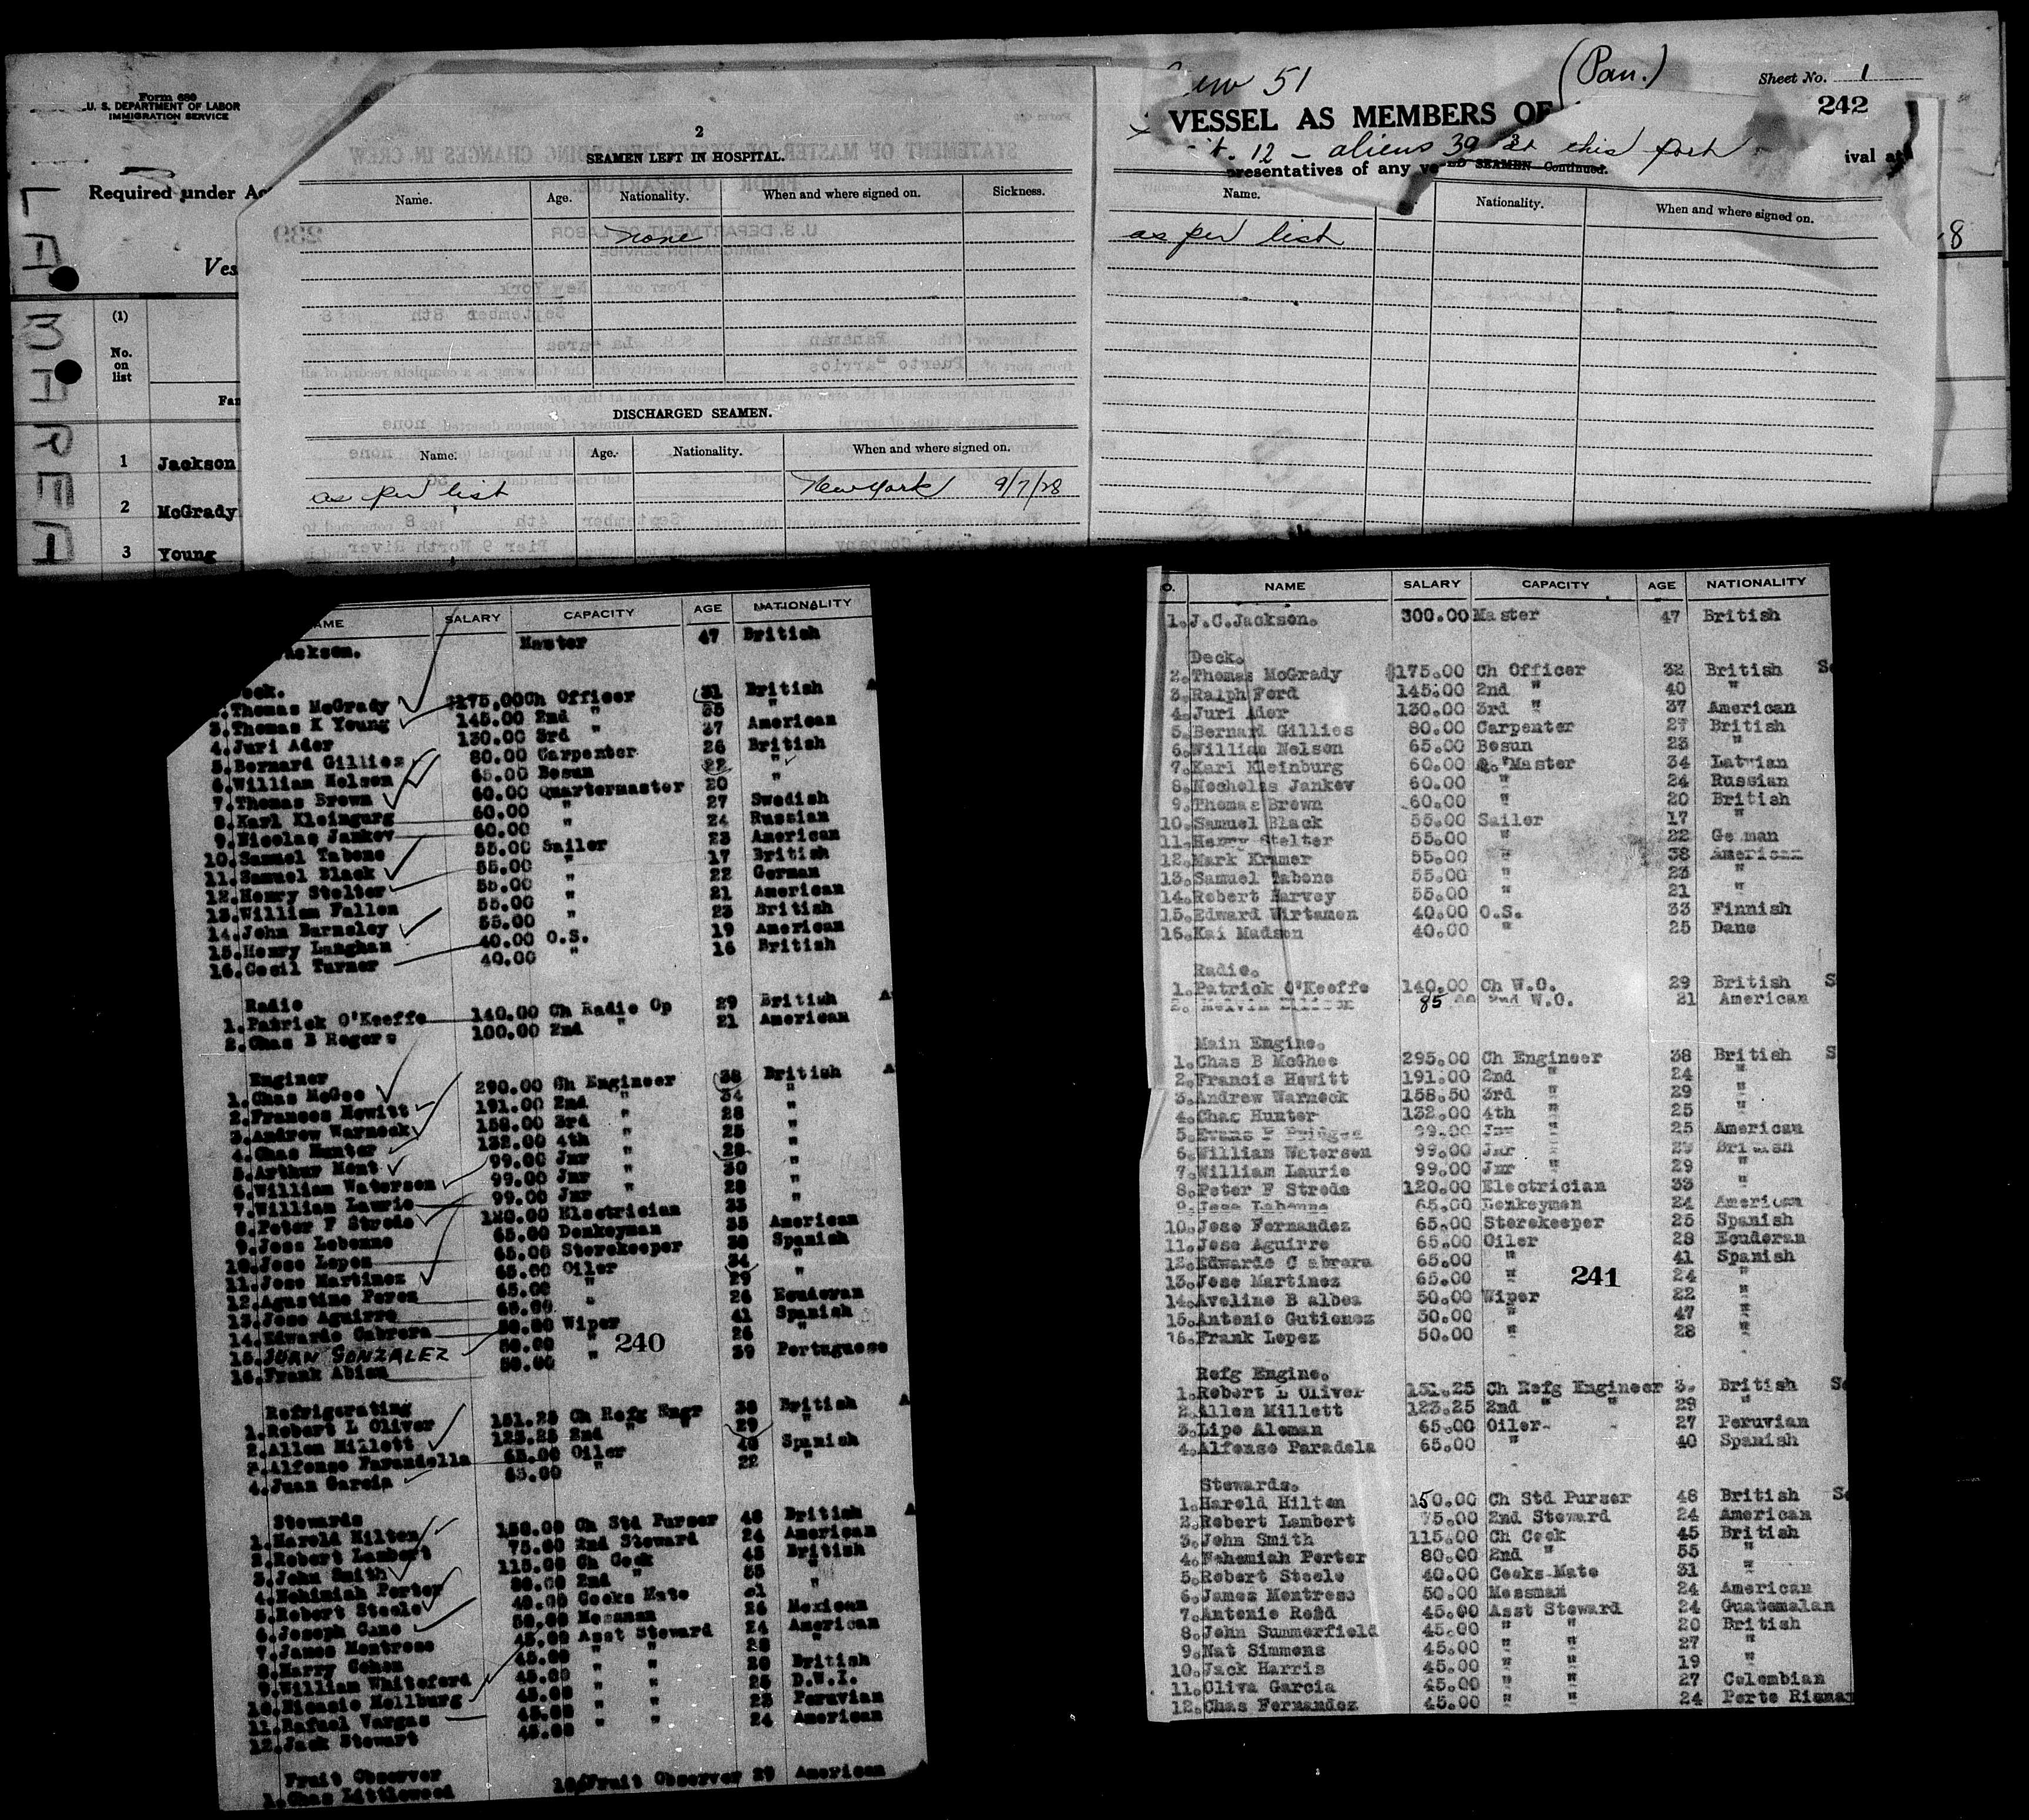 Form 680
U. S. DEPARTMENT OF LABOR
IMMIGRATION SERVICE
Required under Ac
Ves
(1)
No.
on
list
Fam
1 Jackson
2 McGrady
3 Young
2
SEAMEN LEFT IN HOSPITAL.
Name. Age. Nationality. When and where signed on. Sickness.
none
DISCHARGED SEAMEN.
Name. Age. Nationality. When and where signed on.
as per list New York 9/7/28
51 (Pan.) Sheet No. 1
242
VESSEL AS MEMBERS OF
12 - aliens 39 at this port
presentatives of any ve ED SEAMEN—Continued. ival at
Name. Nationality. When and where signed on.
as per list
8
NAME SALARY CAPACITY AGE NATIONALITY
Jackson. Master 47 British
Deck.
Thomas McGrady $175.00 Ch Officer 31 British A
3. Thomas K Young 145.00 2nd " 35 "
4. Juri Ader 130.00 3rd " 37 American
5. Bernard Gillies 80.00 Carpenter 26 British
6. William Nelson 65.00 Bosun 22 "
7. Thomas Brown 60.00 Quartermaster 20 "
8. Karl Kleingurg 60.00 " 27 Swedish
9. Nicolas Jankov 60.00 " 24 Russian
10. Samuel Tabone 55.00 Sailor 23 American
11. Samuel Black 55.00 " 17 British
12. Henry Stelter 55.00 " 22 German
13. William Fallon 55.00 " 21 American
14. John Barnsley 55.00 " 23 British
15. Henry Langhan 40.00 O.S. 19 American
16. Cecil Turner 40.00 " 16 British
Radio
1. Patrick O'Keeffe 140.00 Ch Radio Op 29 British A
2. Chas B Rogers 100.00 2nd " 21 American
Enginer
1. Chas McGee 290.00 Ch Engineer 38 British A
2. Frances Hewitt 191.00 2nd " 34 "
3. Andrew Warnock 158.00 3rd " 28 "
4. Chas Hunter 132.00 4th " 25 "
5. Arthur Ment 99.00 Jnr " 28 "
6. William Waterson 99.00 Jnr " 30 "
7. William Laurie 99.00 Jnr " 28 "
8. Peter F Strode 120.00 Electrician 33 "
9. Jess Lebenne 65.00 Donkeyman 35 American
10. Jose Lopez 65.00 Storekeeper 30 Spanish
11. Jose Martinez 65.00 Oiler 24 "
12. Agustine Perez 65.00 " 29 "
13. Jose Aguirre 65.00 " 26 Ecuderan
14. Edwardo Cabrera 50.00 Wiper 41 Spanish
15. JUAN GONZALEZ 50.00 " 26 "
16. Frank Abien 50.00 " 39 Portuguese
240
Refrigerating
1. Robert L Oliver 151.25 Ch Refg Engr 38 British A
2. Allen Millett 123.25 2nd " " 29 "
3. Alfonso Parandella 65.00 Oiler 40 Spanish
4. Juan Garcia 65.00 " 22 "
Stewards
1. Harold Hilton 150.00 Ch Std Purser 48 British A
2. Robert Lambert 75.00 2nd Steward 24 American
3. John Smith 115.00 Ch Cook 45 British
4. Nehimiah Porter 80.00 2nd " 55 "
5. Robert Steele 40.00 Cooks Mate 31 "
6. Joseph Cane 50.00 Messman 26 Mexican
7. James Montrose 45.00 Asst Steward 24 American
8. Harry Cohen 45.00 " " 28 "
9. William Whiteford 45.00 " " 20 British
10. Dionsio Hollburg 45.00 " " 25 D.W.I.
11. Rafael Vargas 45.00 " " 23 Peruvian
12. Jack Stewart 45.00 " " 24 American
Fruit Observer
1. Chas Littlewood Fruit Observer 29 American
O. NAME SALARY CAPACITY AGE NATIONALITY
1. J.C.Jackson. 300.00 Master 47 British
Deck.
2. Thomas McGrady $175.00 Ch Officer 32 British S
3. Ralph Ford 145.00 2nd " 40 "
4. Juri Ader 130.00 3rd " 37 American
5. Bernard Gillies 80.00 Carpenter 27 British
6. William Nelson 65.00 Bosun 23 "
7. Karl Kleinburg 60.00 Q. Master 34 Latvian
8. Necholas Jankov 60.00 " 24 Russian
9. Thomas Brown 60.00 " 20 British
10. Samuel Black 55.00 Sailor 17 "
11. Henry Stelter 55.00 " 22 Ge man
12. Mark Kramer 55.00 " 38 American
13. Samuel Tabone 55.00 " 23 "
14. Robert Harvey 55.00 " 21 "
15. Edward Wirtamen 40.00 O.S. 33 Finnish
16. Kai Madson 40.00 " 25 Dane
Radio.
1. Patrick O'Keeffe 140.00 Ch W.O. 29 British S
2. Melvin Ellison 85 00 2nd W.O. 21 American
Main Engine.
1. Chas B McGhee 295.00 Ch Engineer 38 British S
2. Francis Hewitt 191.00 2nd " 24 "
3. Andrew Warnock 158.50 3rd " 29 "
4. Chas Hunter 132.00 4th " 25 "
5. Evans F Bridges 99.00 Jnr " 25 American
6. William Waterson 99.00 Jnr " 29 British
7. William Laurie 99.00 Jnr " 29 "
8. Peter F Strode 120.00 Electrician 33 "
9. Jess Lebenne 65.00 Donkeyman 24 American
10. Jose Fernandez 65.00 Storekeeper 25 Spanish
11. Jose Aguirre 65.00 Oiler 28 Ecuderan
12. Edwardo C abrera 65.00 " 41 Spanish
13. Jose Martinez 65.00 " 24 "
14. Aveline B albes 50.00 Wiper 22 "
15. Antonio Gutienez 50.00 " 47 "
16. Frank Lopez 50.00 " 28 "
241
Refg Engine.
1. Robert L Oliver 151.25 Ch Refg Engineer 3. British S
2. Allen Millett 123.25 2nd " " 29 "
3. Lipo Aleman 65.00 Oiler 27 Peruvian
4. Alfonso Paradela 65.00 " 40 Spanish
Stewards.
1. Harold Hilton 150.00 Ch Std Purser 48 British S
2. Robert Lambert 75.00 2nd Steward 24 American
3. John Smith 115.00 Ch Cook 45 British
4. Nehemiah Porter 80.00 2nd " 55 "
5. Robert Steele 40.00 Cooks Mate 31 "
6. James Montrose 50.00 Messman 24 American
7. Antonio Redd 45.00 Asst Steward 24 Guatemalan
8. John Summerfield 45.00 " " 20 British
9. Nat Simmons 45.00 " " 27 "
10. Jack Harris 45.00 " " 19 "
11. Oliva Garcia 45.00 " " 27 Colombian
12. Chas Fernandez 45.00 " " 24 Porto Rican